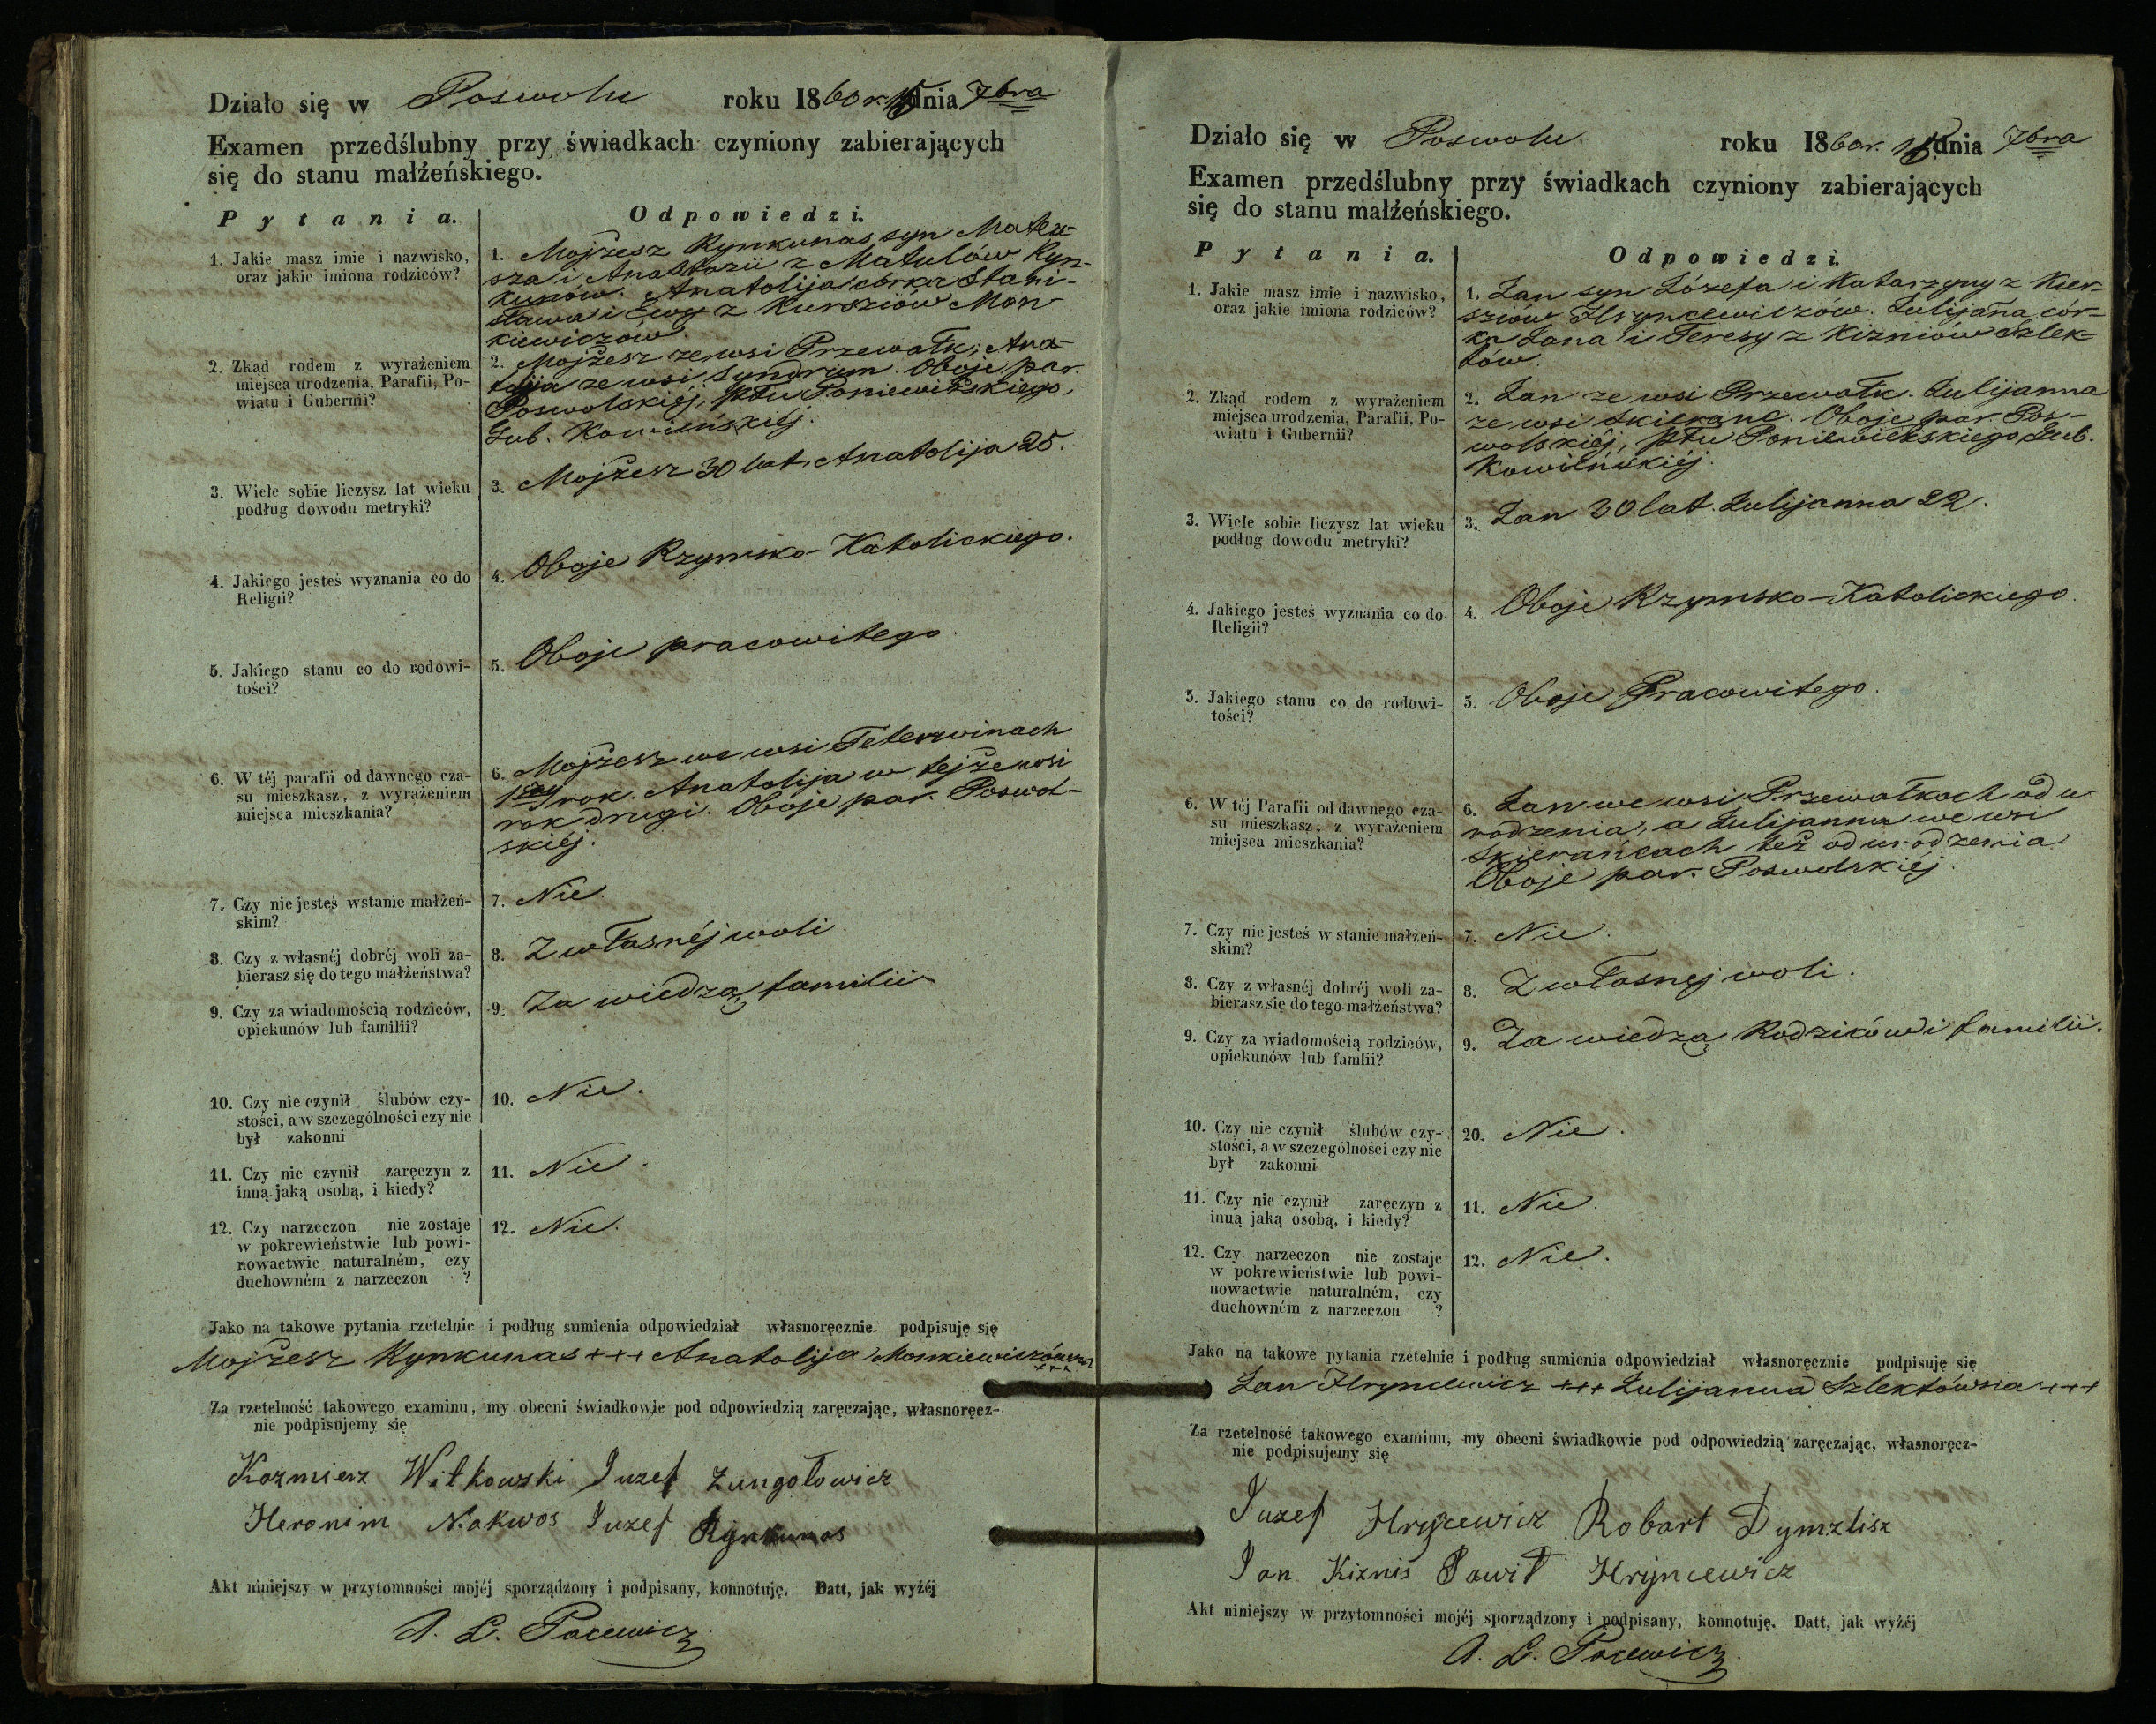 Działo się w Poswolu roku 1860 r. 15 dnia 7bra
Examen przedślubny przy świadkach czyniony zabierających
się do stanu małżeńskiego.
Pytania.
Odpowiedzi.
1. Jakie masz imie i nazwisko,
oraz jakie imiona rodziców?
1. Mojżesz Rynkunas syn Mateu-
sza i Anastazii z Matulów Ryn-
kunów. Anatolija córka Stani-
sława i Ewy z Kursziów Mon-
kiewiczów.
2. Zkąd rodem z wyrażeniem
miejsca urodzenia, Parafii, Po-
wiatu i Gubernii?
2. Mojżesz ze wsi Przewałk; Ana-
tolija ze wsi Syndrium. Oboje par.
Poswolskiéj, Pttu Poniewieżskiego,
Gub. Kowieńskiéj.
3. Wiele sobie liczysz lat wieku
podług dowodu metryki?
3. Mojżesz 30 lat, Anatolija 25.
4. Jakiego jesteś wyznania co do
Religii?
4. Oboje Rzymsko-Katolickiego.
5. Jakiego stanu co do rodowi-
tości?
5. Oboje pracowitego.
6. W téj parafii od dawnego cza-
su mieszkasz, z wyrażeniem
miejsca mieszkania?
6. Mojżesz we wsi Teterwinach
1szy rok. Anatolija w tejże wsi
rok drugi. Oboje par. Poswol-
skiéj.
7. Czy nie jesteś wstanie małżeń-
skim?
7. Nie.
8. Czy z własnéj dobréj woli za-
bierasz się do tego małżeństwa?
8. Z własnéj woli.
9. Czy za wiadomością rodziców,
opiekunów lub familii?
9. Za wiedzą familii
10. Czy nie czynił ślubów czy-
stości, a w szczególności czy nie
był zakonni
10. Nie.
11. Czy nie czynił zaręczyn z
inną jaką osobą, i kiedy?
11. Nie.
12. Czy narzeczon nie zostaje
w pokrewieństwie lub powi-
nowactwie naturalném, czy
duchowném z narzeczon ?
12. Nie.
Jako na takowe pytania rzetelnie i podług sumienia odpowiedział własnoręcznie podpisuję się
Mojżesz Rynkunas +++ Anatolija Monkiewiczówna +++
Za rzetelność takowego examinu, my obecni świadkowie pod odpowiedzią zaręczając, własnoręcz-
nie podpisujemy się
Kazmierz Witkowski Juzef Zungołowicz
Heronim Nakwos Juzef Rynkunas
Akt niniejszy w przytomności mojéj sporządzony i podpisany, konnotuję. Datt, jak wyżéj
A. L. Pacewicz.
Działo się w Poswolu. roku 1860 r. dnia 7bra
Examen przedślubny przy świadkach czyniony zabierających
się do stanu małżeńskiego.
Pytania.
Odpowiedzi.
1. Jakie masz imie i nazwisko,
oraz jakie imiona rodziców?
1. Jan syn Józefa i Katarzyny z Kier-
sziów Hryncewiczów. Julijanna cór-
ka Jana i Teresy z Kizniów Szlek-
tów.
2. Zkąd rodem z wyrażeniem
miejsca urodzenia, Parafii, Po-
wiatu i Gubernii?
2. Jan ze wsi Przewałk. Julijanna
ze wsi Skieranc. Oboje par. Pos-
wolskiéj, Pttu Poniewieżskiego, Gub.
Kowieńskiéj.
3. Wiele sobie liczysz lat wieku
podług dowodu metryki?
3. Jan 30 lat. Julijanna 22.
4. Jakiego jesteś wyznania co do
Religii?
4. Oboje Rzymsko-Katolickiego.
5. Jakiego stanu co do rodowi-
tości?
5. Oboje Pracowitego.
6. W téj Parafii od dawnego cza-
su mieszkasz, z wyrażeniem
miejsca mieszkania?
6. Jan we wsi Przewałkach od u-
rodzenia, a Julijanna we wsi
Skierańcach też od urodzenia.
Oboje par. Poswolskiéj.
7. Czy nie jesteś w stanie małżeń-
skim?
7. Nie.
8. Czy z własnéj dobréj woli za-
bierasz się do tego małżeństwa?
8. Z własnej woli.
9. Czy za wiadomością rodziców,
opiekunów lub famlii?
9. Za wiedzą Rodziców i familii.
10. Czy nie czynił ślubów czy-
stości, a w szczególności czy nie
był zakonni
20. Nie.
11. Czy nie czynił zaręczyn z
inuą jaką osobą, i kiedy?
11. Nie.
12. Czy narzeczon nie zostaje
w pokrewieństwie lub powi-
nowactwie naturalném, czy
duchowném z narzeczon ?
12. Nie.
Jako na takowe pytania rzetelnie i podług sumienia odpowiedział własnoręcznie podpisuję się
Jan Hryncewicz +++ Julijanna Szlektówna +++
Za rzetelność takowego examinu, my obecni świadkowie pod odpowiedzią zaręczając, własnoręcz-
nie podpisujemy się
Juzef Hryncewicz Robart Dymzlisz
Jan Kiznis Pawił Hryncewicz
Akt niniejszy w przytomności mojéj sporządzony i podpisany, konnotuję. Datt, jak wyżéj
A. L. Pacewicz.